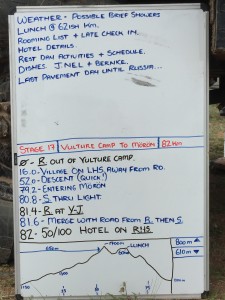 WEATHER - POSSIBLE BRIEF SHOWERS
LUNCH @ 62ISH KM.
ROOMING LIST + LATE CHECK IN.
HOTEL DETAILS
REST DAY ACTIVITIES + SCHEDULE.
DISHES: J. NEL + BERNICE.
LAST PAVEMENT DAY UNTIL RUSSIA...
STAGE 17 VULTURE CAMP TO MORÖN 82KM
0 - R. OUT OF VULTURE CAMP.
16.0 - VILLAGE ON LHS, AWAY FROM RD.
52.0 - DESCENT (QUICK!)
79.2 - ENTERING MORÖN
80.8 - S THRU LIGHT.
81.4 - R AT Y-J
81.6 - MERGE WITH ROAD FROM R. THEN S.
82 - 50/100 HOTEL ON RHS
LUNCH
800m
610m